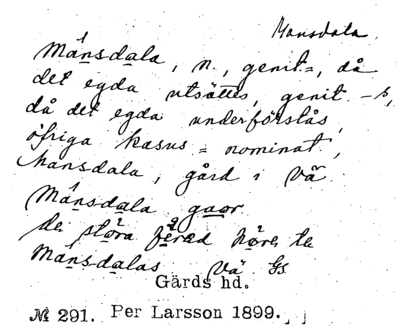 Mansdala
Månsdala, n., genit =, då
det egda utsättes, genit -s,
då det egda underförstås,
öfriga kasus = nominat,
Mansdala, gård i Vä.
Månsdala gaor
de stora höre te
Månsdalas Vä Gs
Gärds hd.
№ 291. Per Larsson 1899.